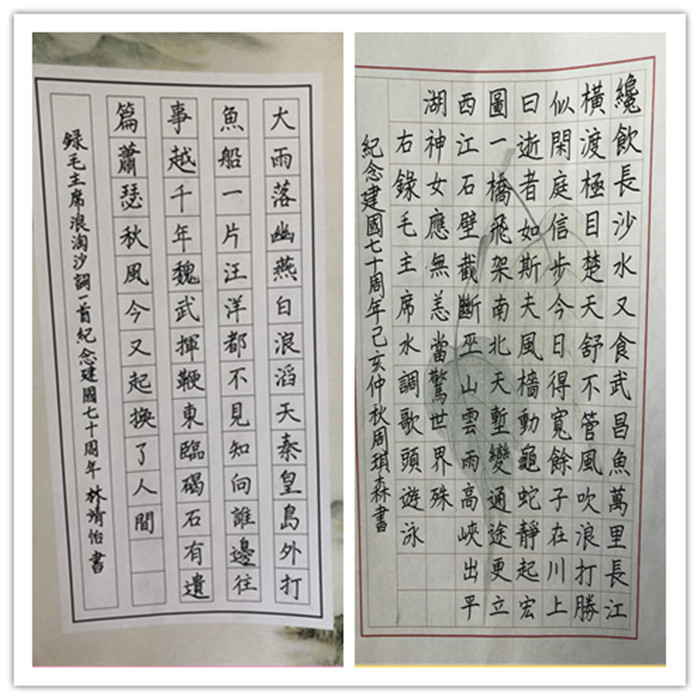 大雨落幽燕白浪滔天秦皇島外打
魚船一片汪洋都不見知向誰邊往
事越千年魏武揮鞭東臨碣石有遺
篇蕭瑟秋風今又起換了人間
錄毛主席浪淘沙詞一首紀念建國七十周年 林靖怡書
纔飲長沙水又食武昌魚萬里長江
橫渡極目楚天舒不管風吹浪打勝
似閑庭信步今日得寬餘子在川上
曰逝者如斯夫風檣動龜蛇靜起宏
圖一橋飛架南北天塹變通途更立
西江石壁截斷巫山雲雨高峽出平
湖神女應無恙當驚世界殊
右錄毛主席水調歌頭遊泳
紀念建國七十周年己亥仲秋周琪森書